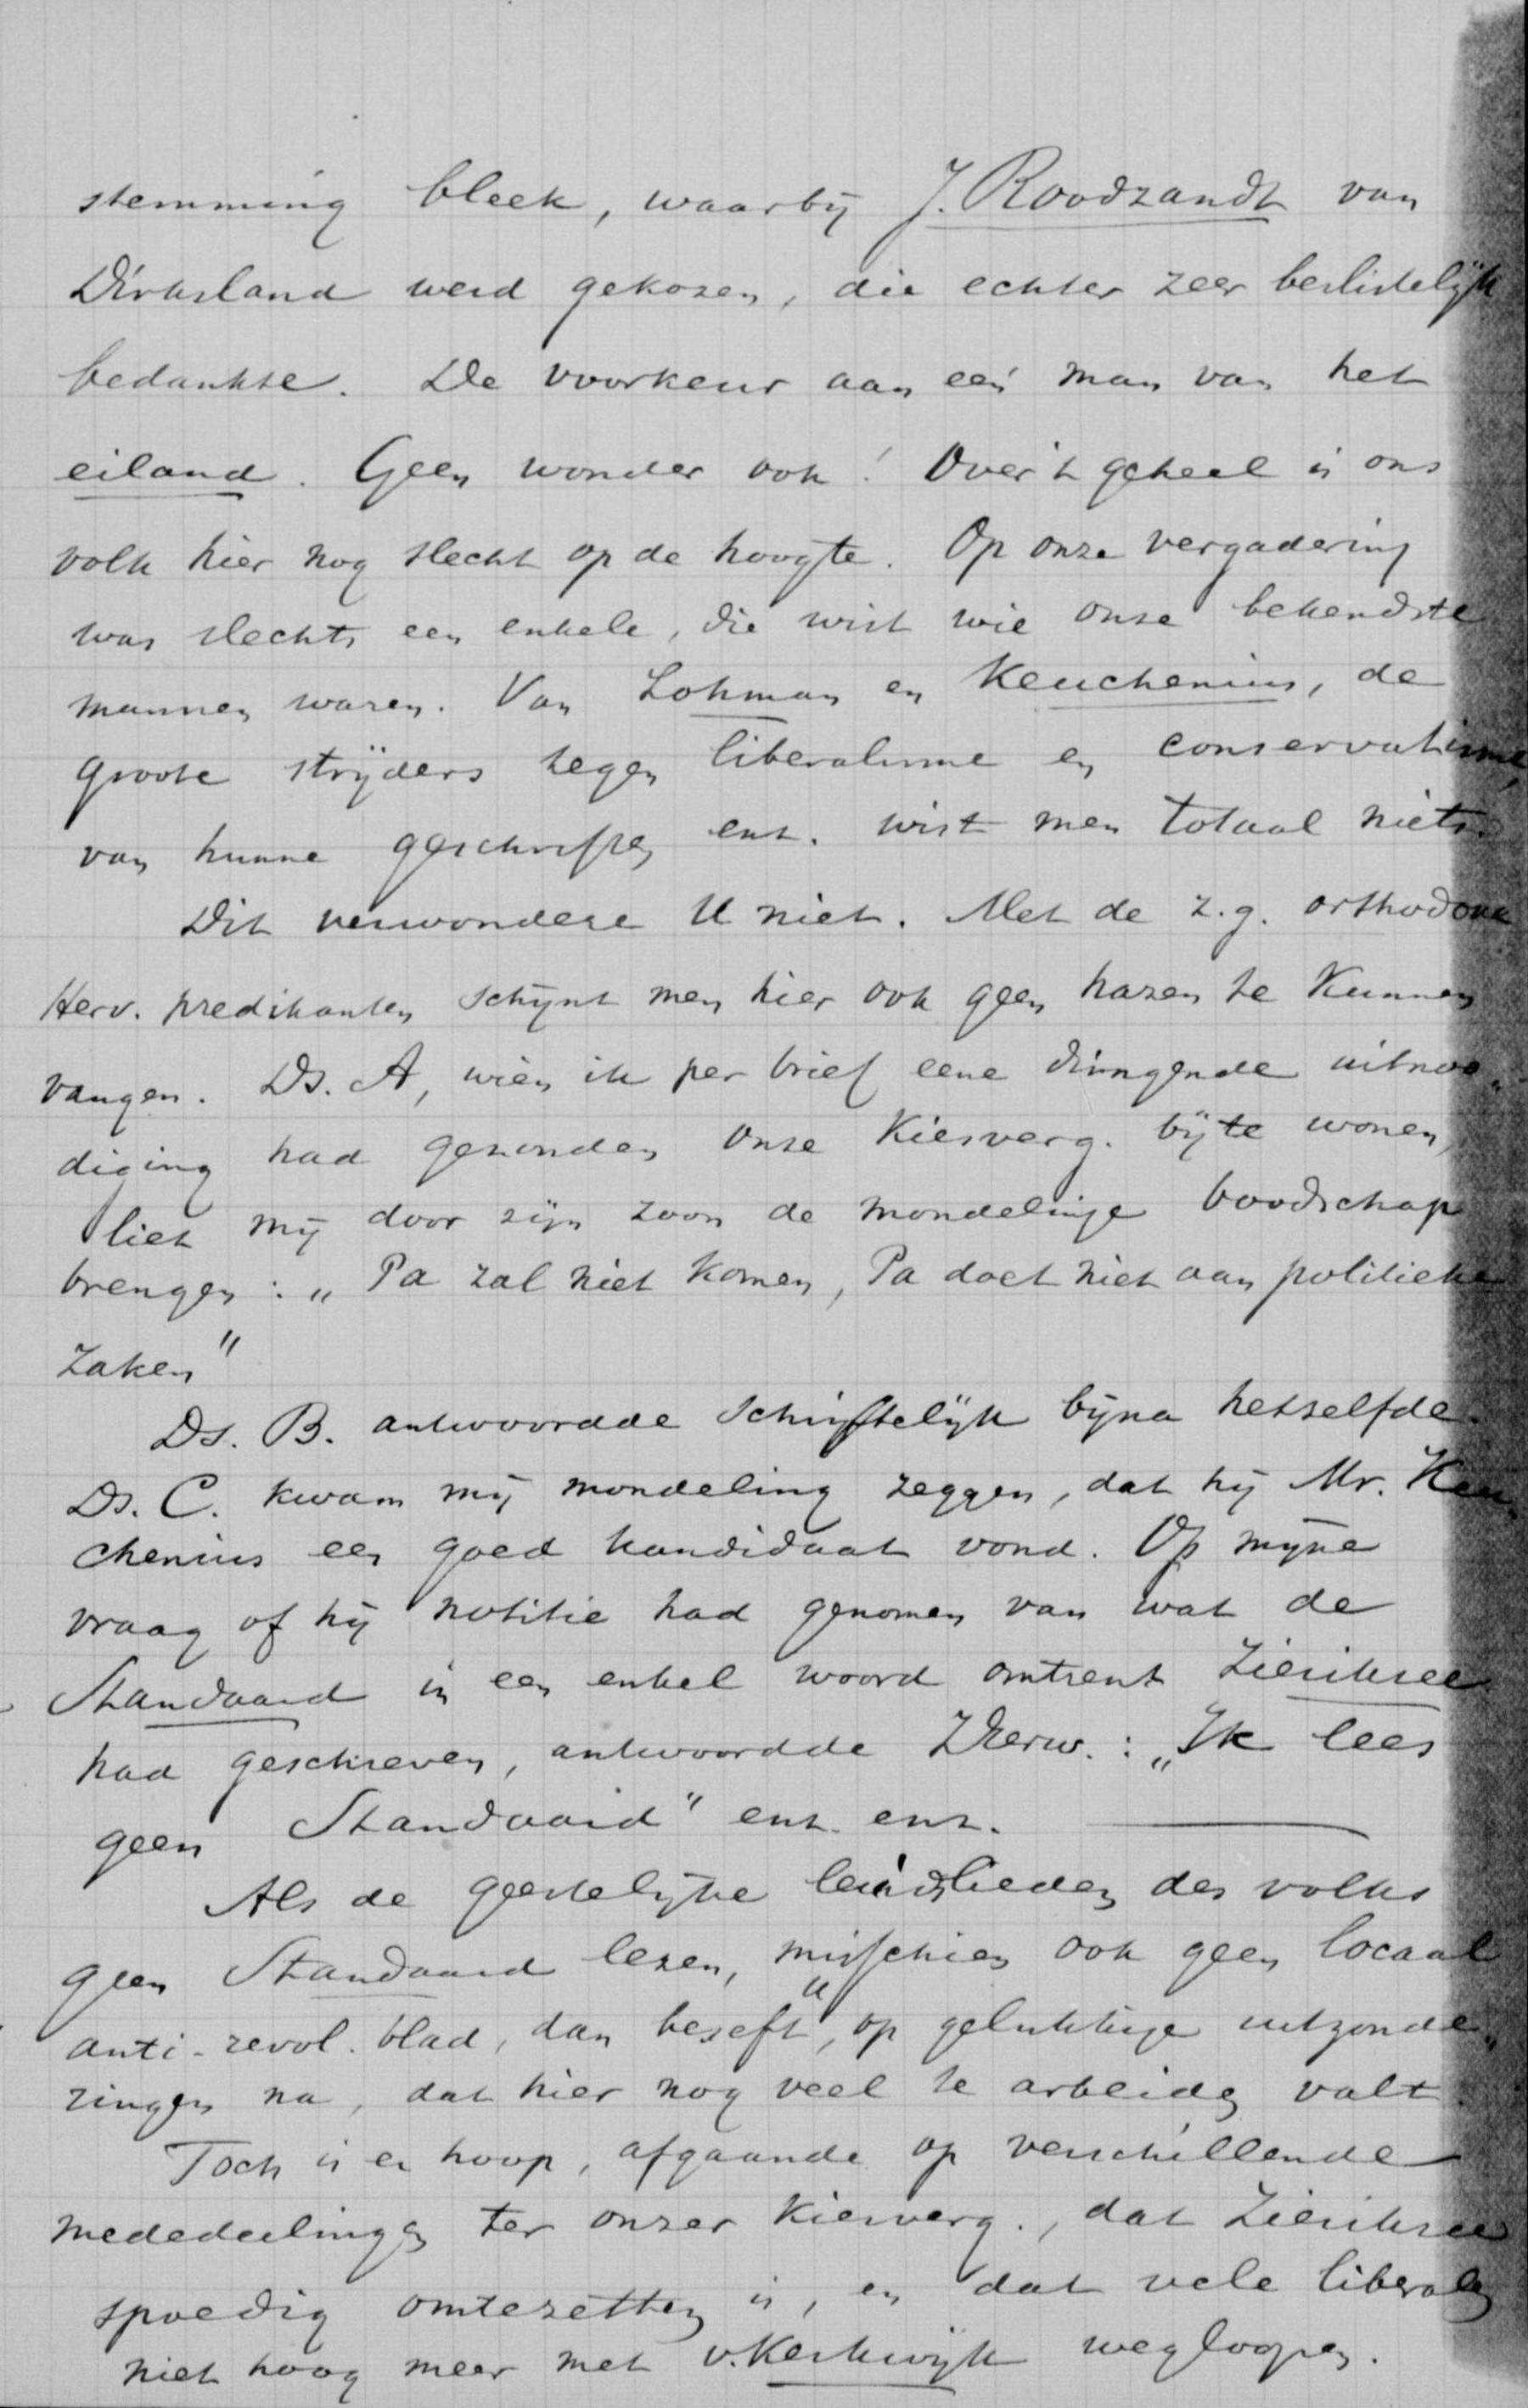 stemming bleek, waarbij J. Roodzandt van
Dirksland werd gekozen, die echter zeer beslistelijk
bedankte. De voorkeur aan een man van het
eiland. Geen wonder ook! Over 't geheel is ons
volk hier nog slecht op de hoogte. Op onze vergadering
was slechts een enkele, die wist wie onze bekendste
mannen waren. Van Lohman en Keuchenius, de
groote strijders tegen liberalisme en conservatisme,
van hunne geschriften enz. wist men totaal niets.
Dit verwondere U niet. Met de z.g. orthodoxe
Herv. predikanten schijnt men hier ook geen hazen te kunnen
vangen. Ds. A, wien ik per brief eene dringende uitnoo„
diging had gezonden onze Kiesverg. bij te wonen,
liet mij door zijn zoon de mondelinge boodschap
brengen: „Pa zal niet komen, Pa doet niet aan politieke
zaken"
Ds. B. antwoordde schriftelijk bijna hetzelfde.
Ds. C. kwam mij mondeling zeggen, dat hij Mr. Keu„
chenius een goed kandidaat vond. Op mijne
vraag of hij notitie had genomen van wat de
Standaard in een enkel woord omtrent Zierikzee
had geschreven, antwoordde ZEerw.: „Ik lees
geen Standaard" enz. enz.
Als de geestelijke leidslieden des volks
geen Standaard lezen, misschien ook geen locaal
anti-revol. blad, dan beseft U, op gelukkige uitzonde„
ringen na, dat hier nog veel te arbeiden valt.
Toch is er hoop, afgaande op verschillende
mededeelingen ter onzer Kiesverg., dat Zierikzee
spoedig omtezetten is, en dat vele liberalen
niet hoog meer met v. Kerkwijk wegloopen.